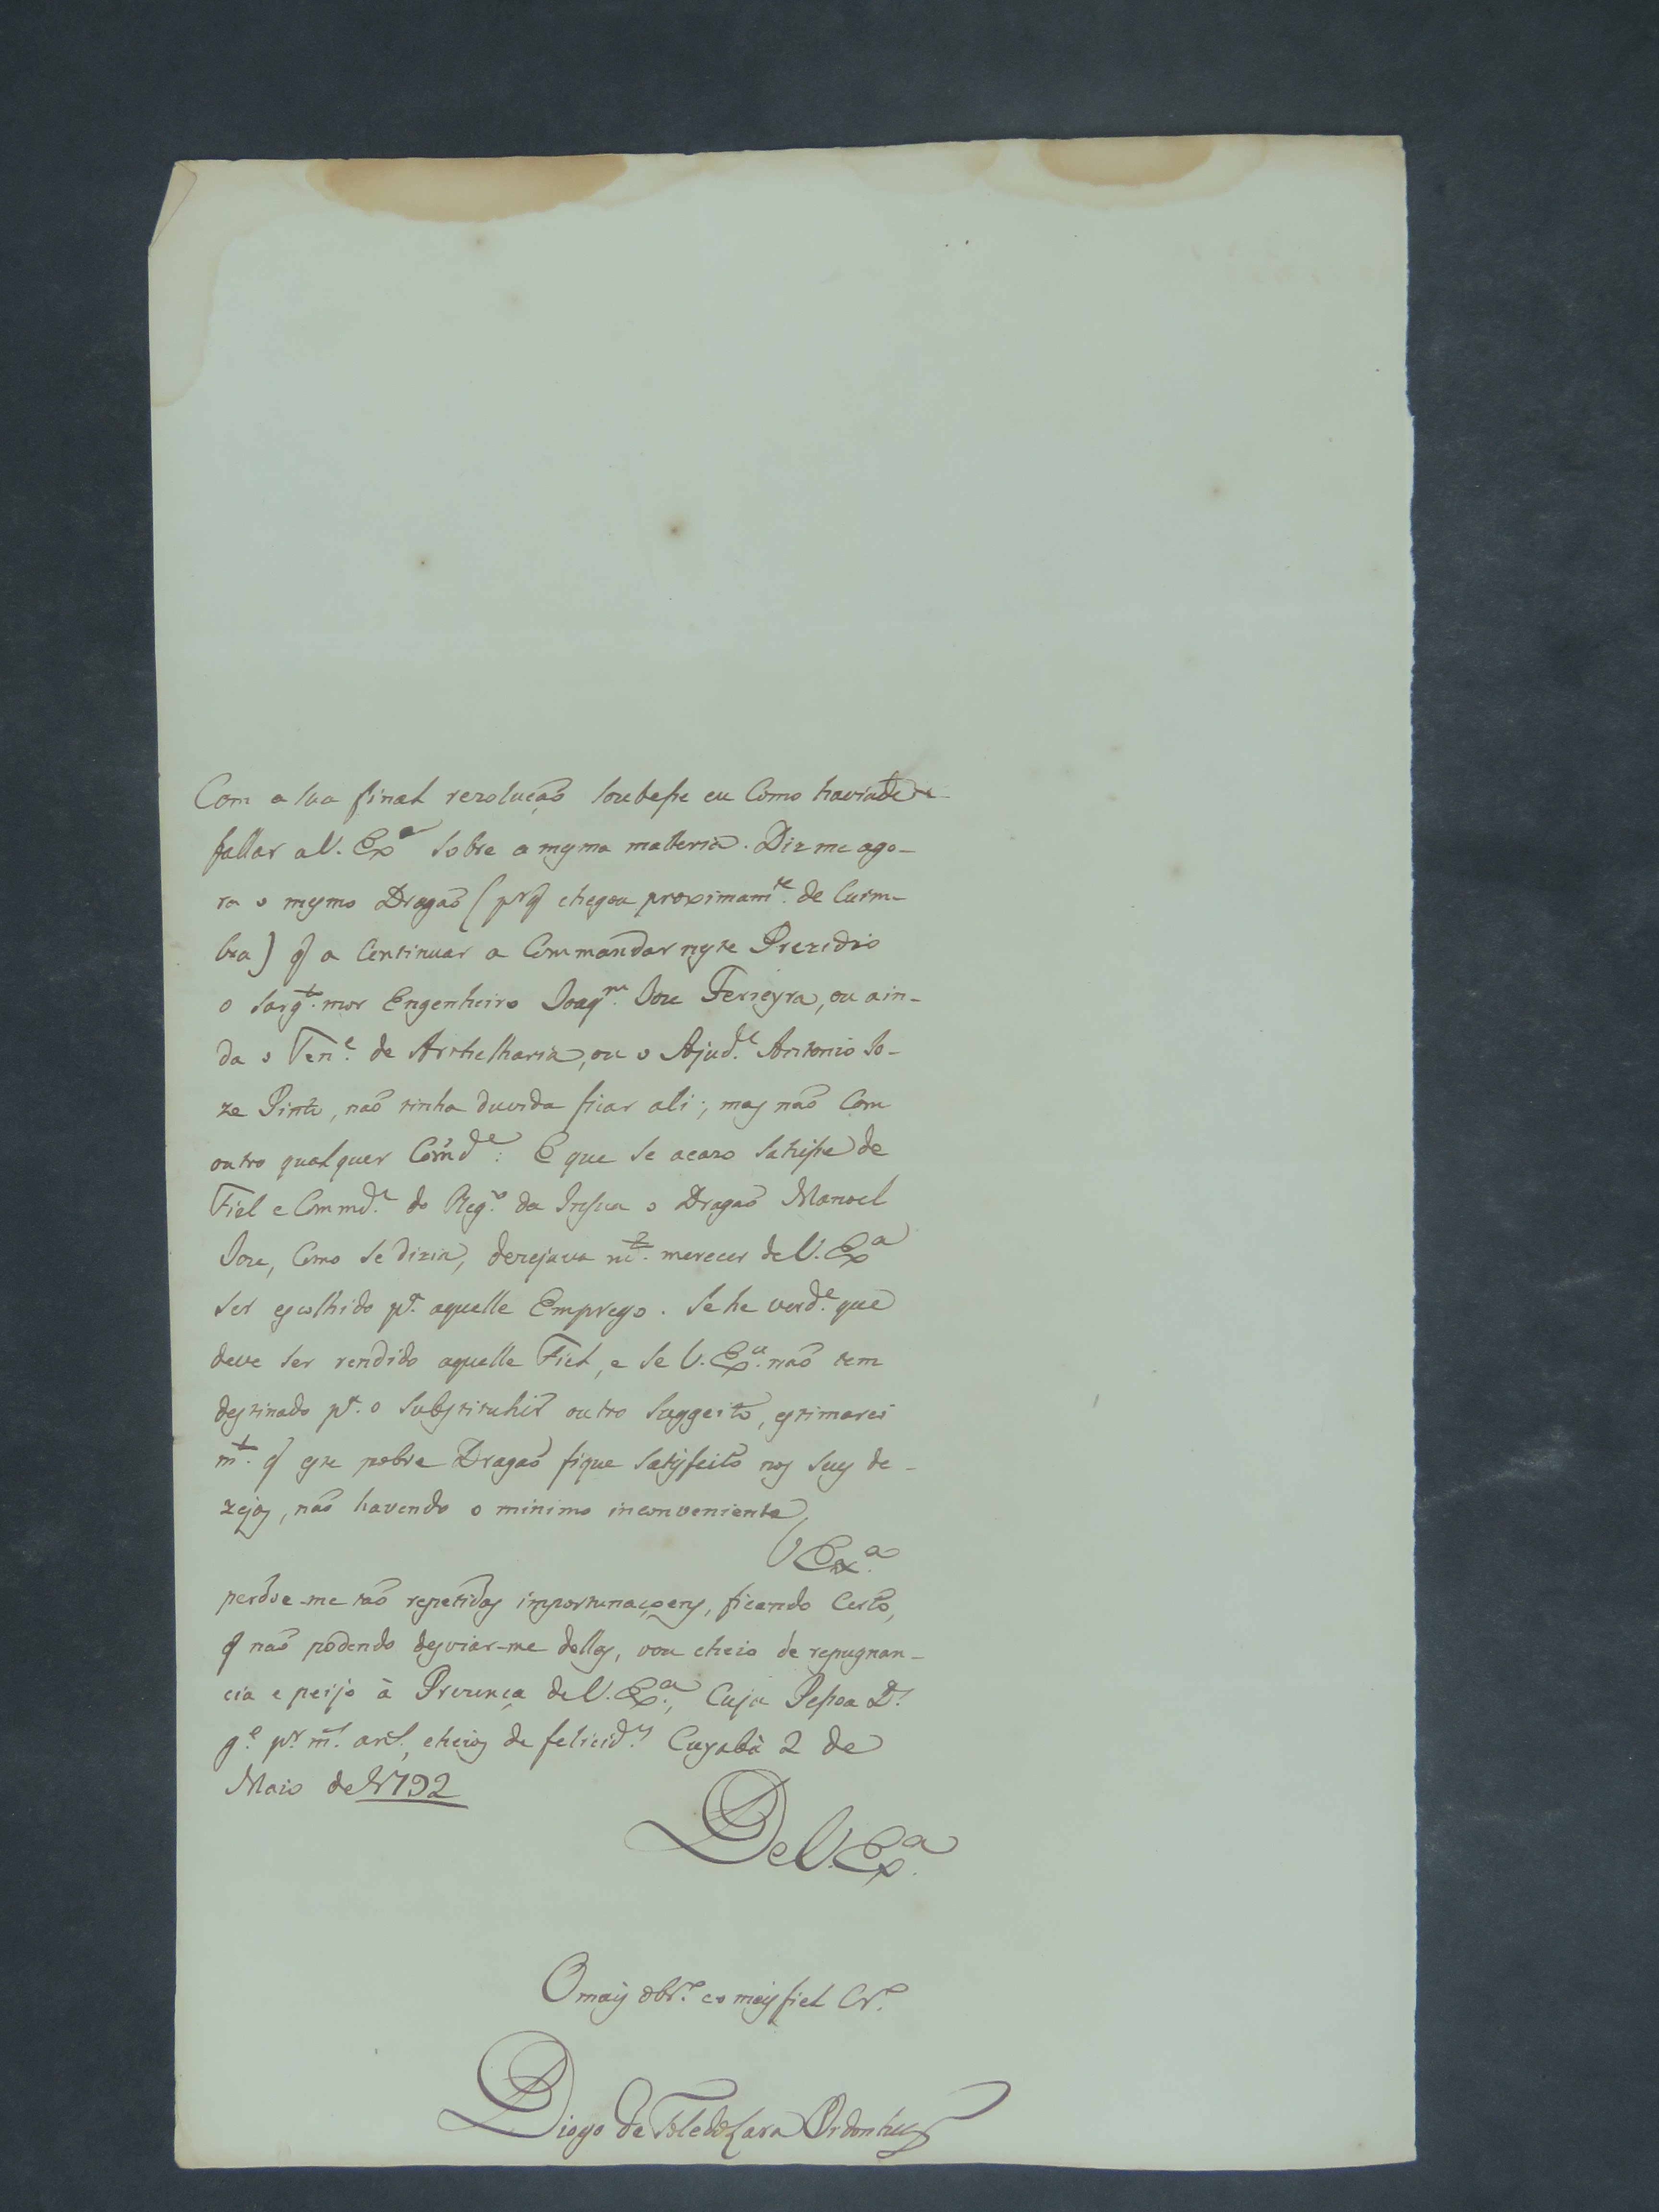 Com a sua final rezolução soubesse eu como havia de
fallar a V. Exª sobre a mesma materia. Diz me ago-
ra o mesmo Dragaõ (prq̃ chegou proximamte. de Coim-
bra) q̃ a continuar a Commandar neste Prezidio
o Sargto. mor Engenheiro Joaqm. Joze Ferreyra, ou ain-
da o Tene. de Arthelharia, ou o Ajude. Antonio Jo-
ze Pinto, naõ tinha duvida ficar ali; mas naõ com
outro qualquer Com̃de: E que se acazo sahisse de
Fiel e Commde. do Rego. da Insua o Dragaõ Manoel
Joze, como se dizia, dezejava mto. merecer de V. Exª
ser escolhido pª. aquelle Emprego. Se he verde. que
deve ser rendido aquelle Fiel, e se V. Exª. naõ tem
destinado pª. o substituhir outro suggeito, estimarei
mto. q̃ este pobre Dragaõ fique satisfeito nos seus de-
zejos, naõ havendo o minimo inconveniente,
V Exª.
perdoe-me taõ repetidas importunaçoens, ficando certo,
q̃ naõ podendo desviar-me dellas, vou cheio de repugnan-
cia e peijo à Prezença de V. Exª., cuja Pessoa Ds.
ge. pr. ms. ans., cheios de felicides. Cuyabà 2 de
Maio de 1792
De V. Exª.
O mais obro. e o mais fiel Cro.
Diogo de Toledo Lara Ordonhes